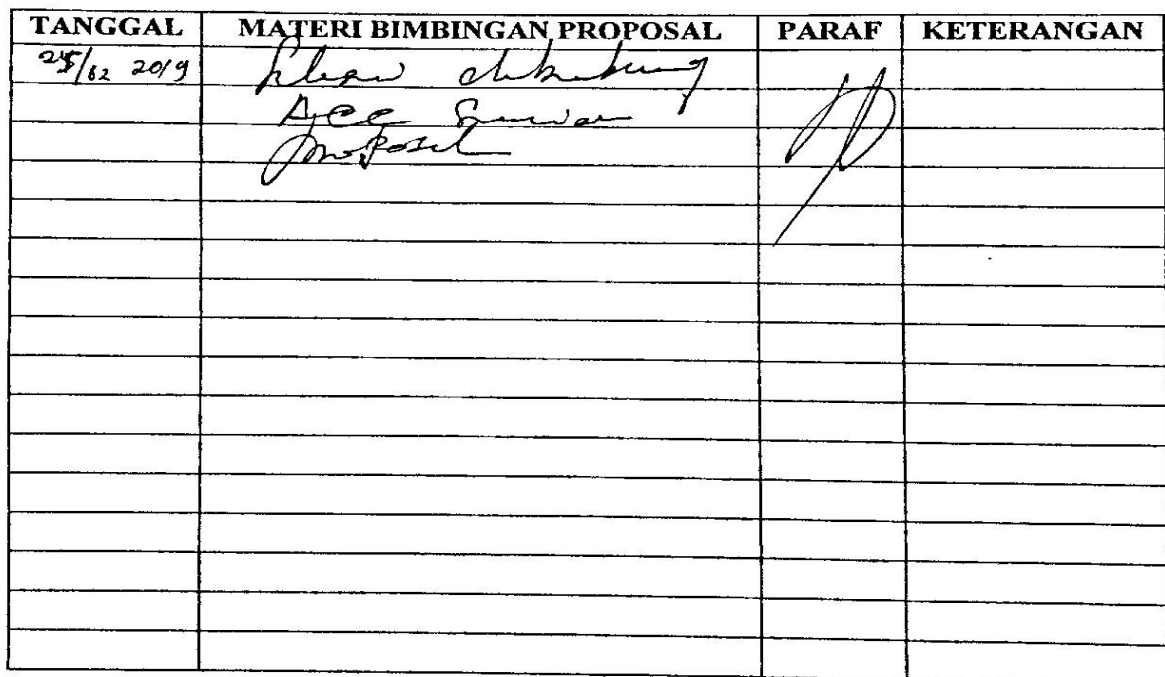 TANGGAL MATERI BIMBINGAN PROPOSAL PARAF KETERANGAN
25/02 2019
Acc
proposal